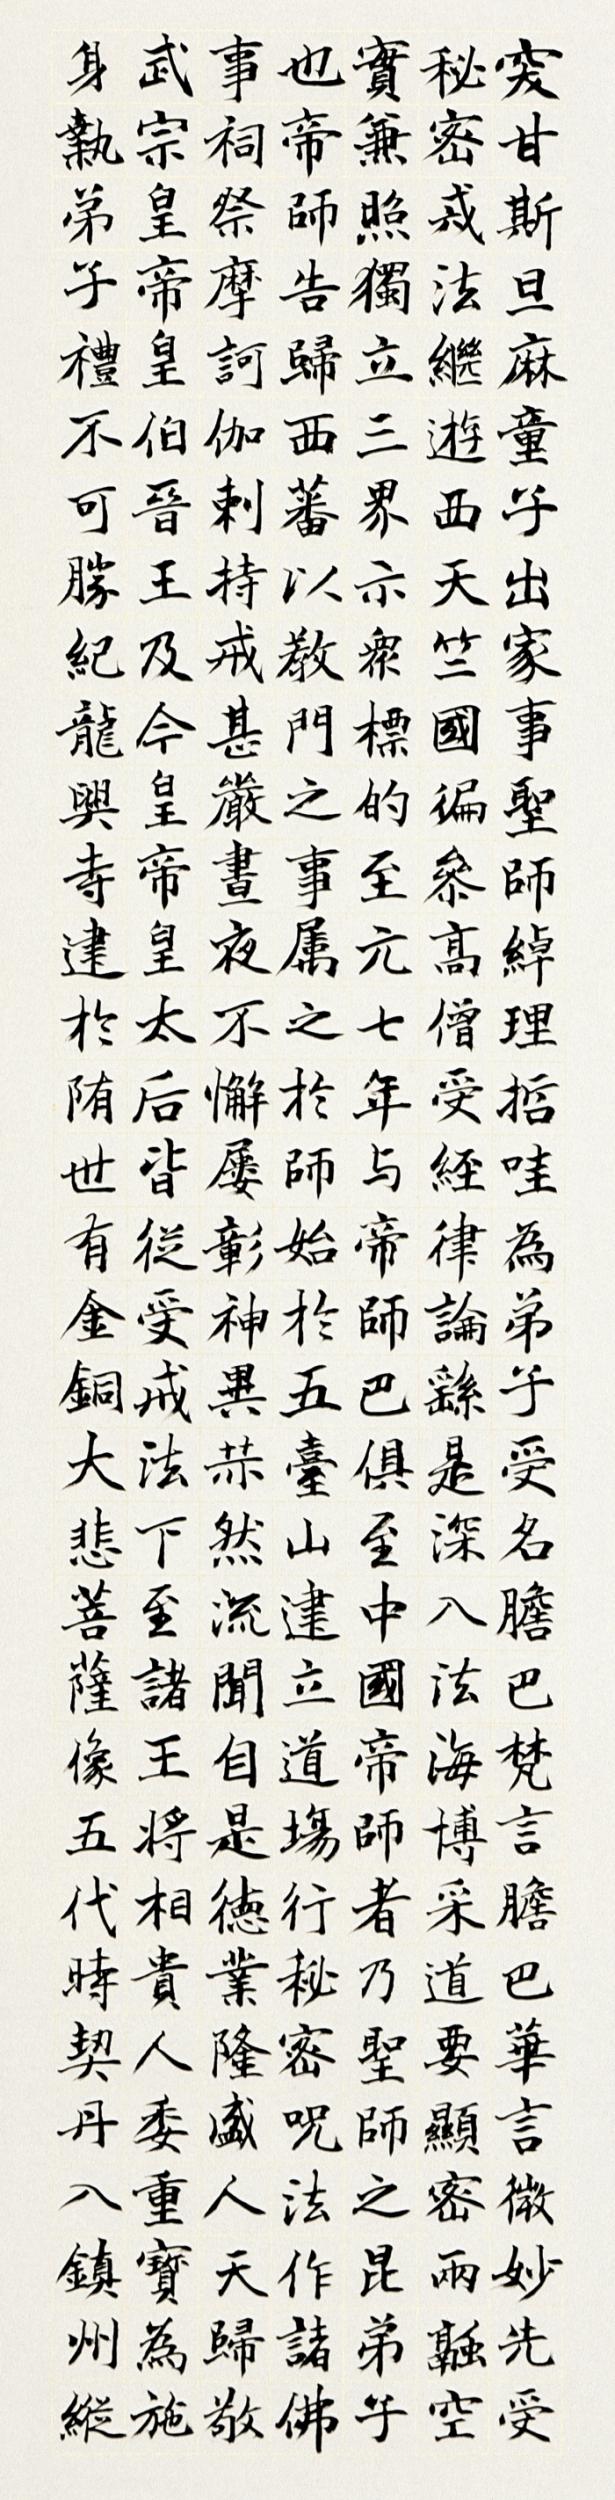 突甘斯旦麻童子出家事聖師綽理哲哇為弟子受名膽巴梵言膽巴華言微妙先受
秘密戒法繼遊西天竺國徧叅高僧受經律論繇是深入法海博采道要顯密兩融空
實兼照獨立三界示衆標的至元七年与帝師巴俱至中國帝師者乃聖師之昆弟子
也帝師告歸西蕃以教門之事属之於師始於五臺山建立道場行秘密呪法作諸佛
事祠祭摩訶伽剌持戒甚嚴晝夜不懈屢彰神異赫然流聞自是德業隆盛人天歸敬
武宗皇帝皇伯晉王及今皇帝皇太后皆從受戒法下至諸王將相貴人委重寶為施
身執弟子禮不可勝紀龍興寺建於隋世有金銅大悲菩薩像五代時契丹入鎮州縱